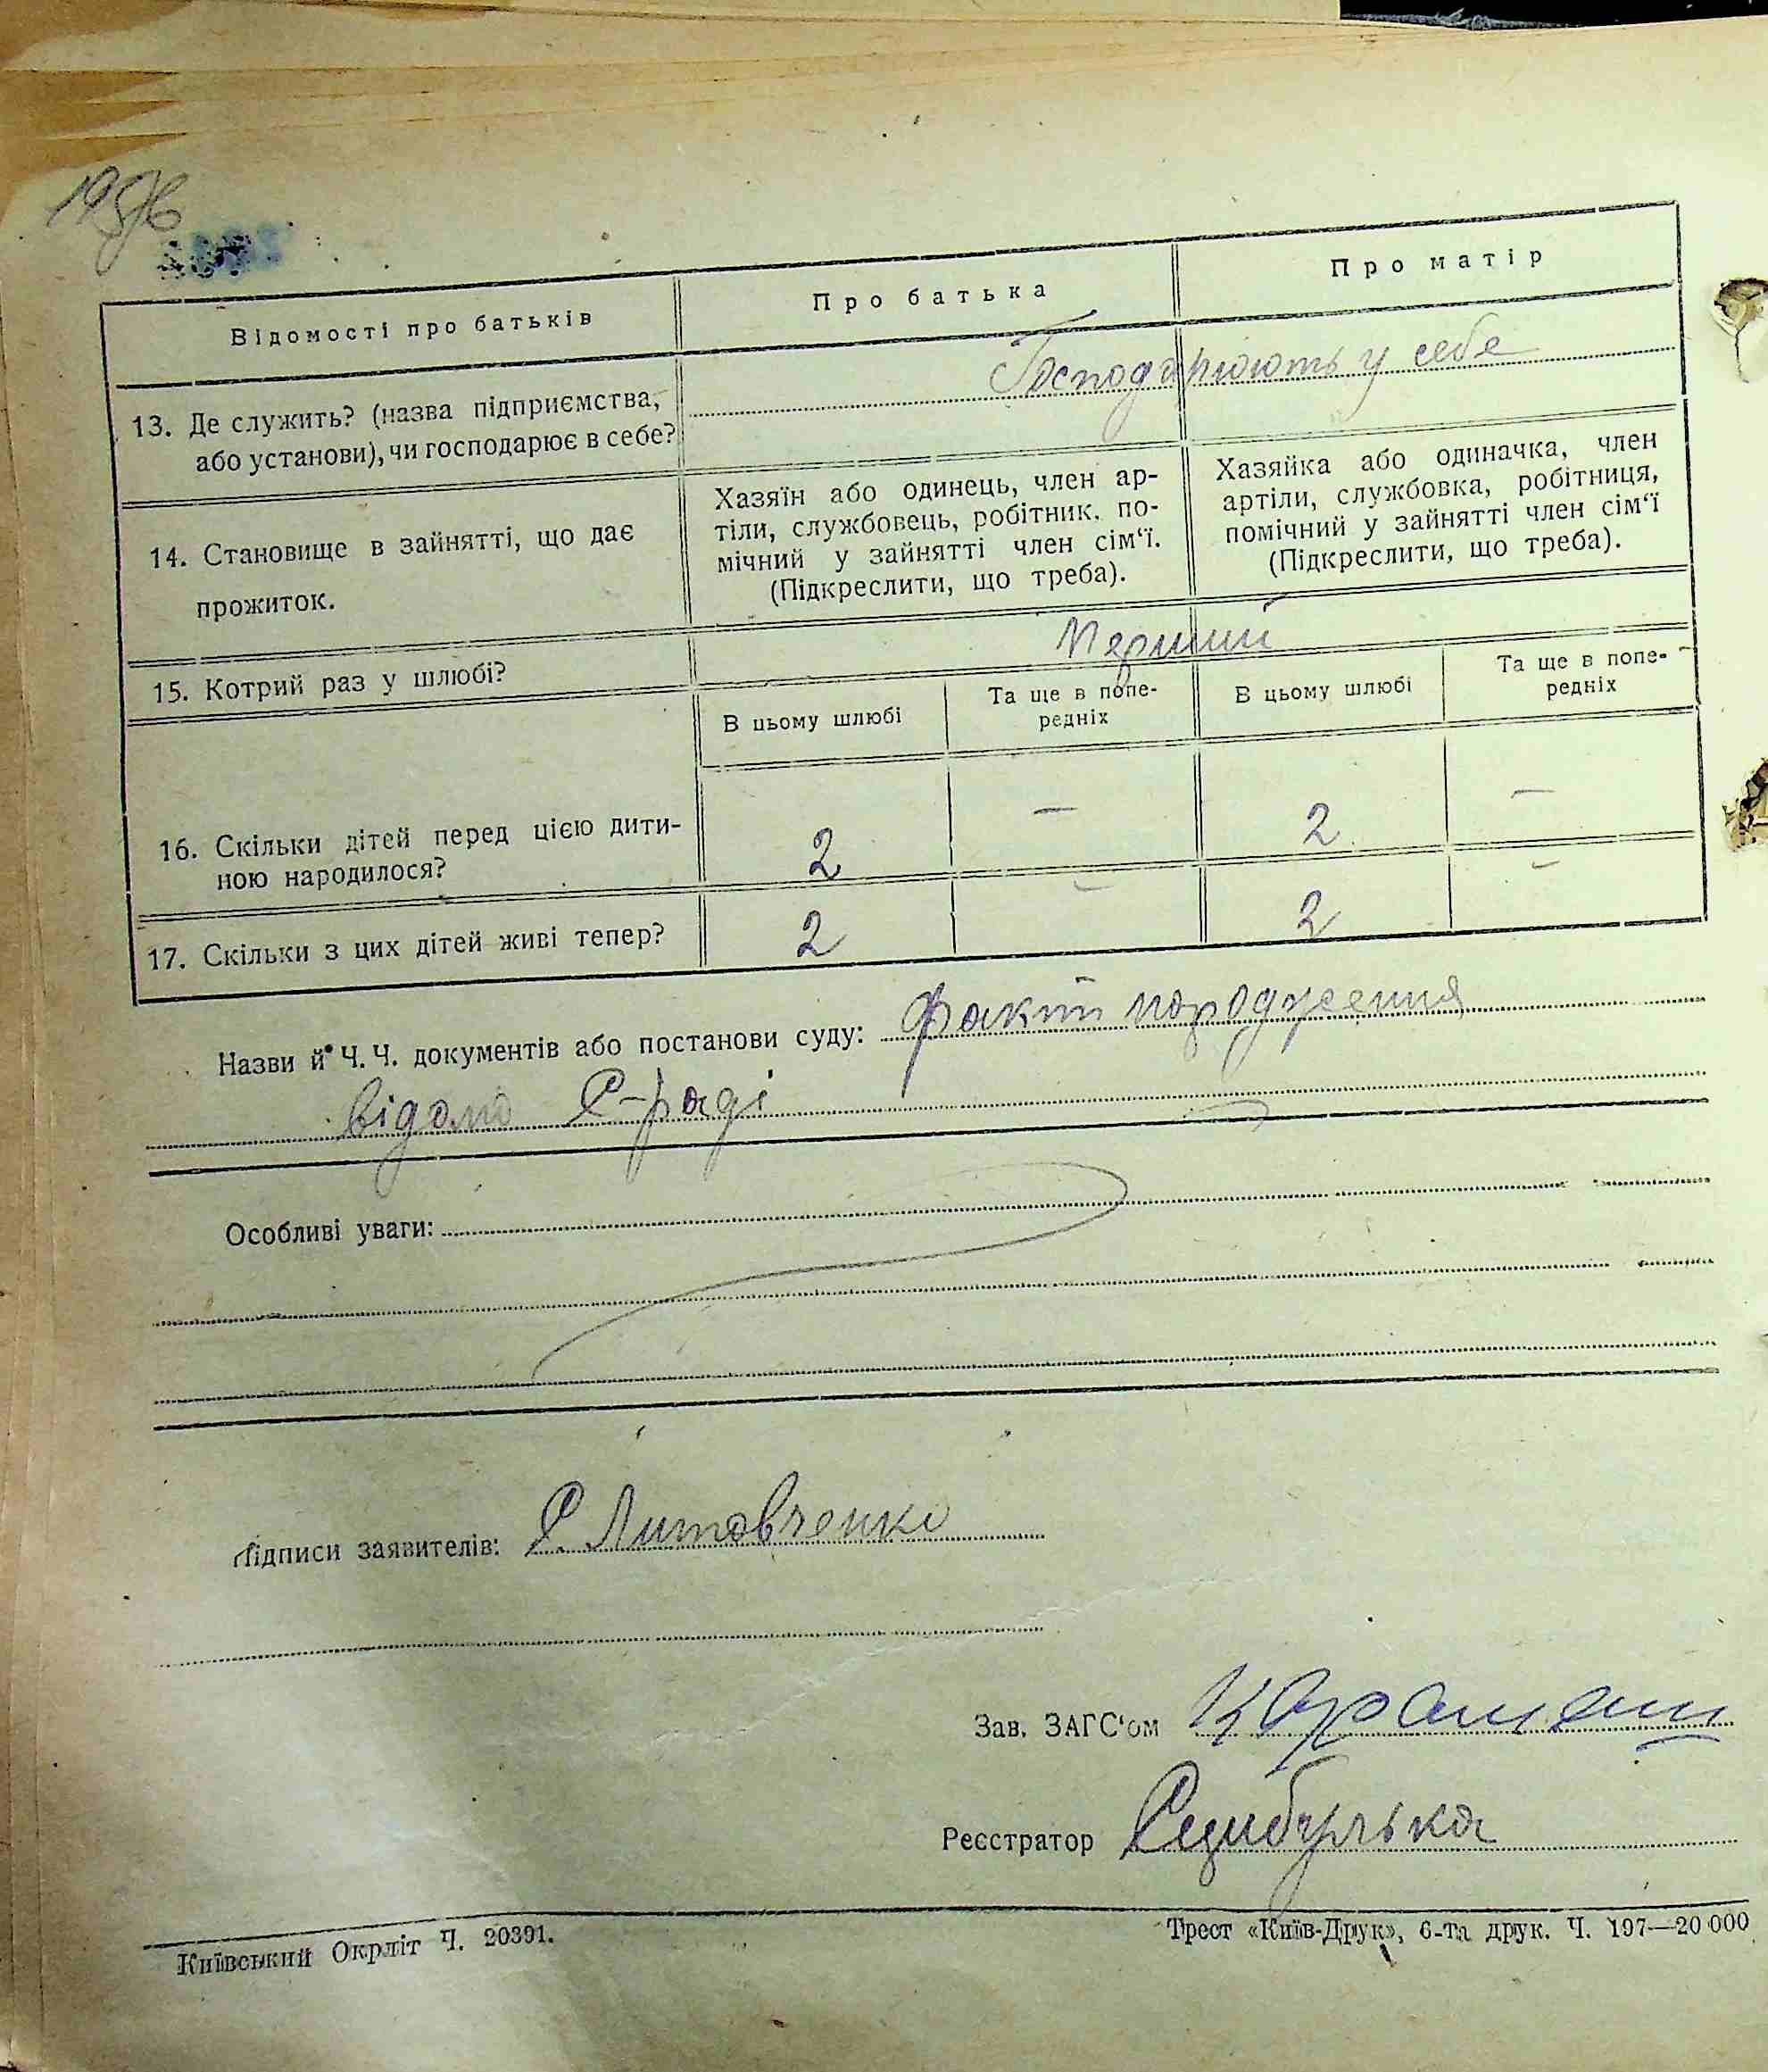 Відомості про батьків
Про батька
Про матір
13. Де служить? (назва підприємства,
або установи), чи господарює в себе?
Господарюють у себе
14. Становище в зайнятті, що дає
прожиток.
Хазяїн або одинець, член ар-
тіли, службовець, робітник. по-
мічний у зайнятті член сім‘ї.
(Підкреслити, що треба).
Хазяйка або одиначка, член
артіли, службовка, робітниця,
помічний у зайнятті член сім‘ї
(Підкреслити, що треба).
15. Котрий раз у шлюбі?
Перший
В цьому шлюбі
Та ще в попе-
редніх
В цьому шлюбі
Та ще в попе-
редніх
16. Скільки дітей перед цією дити-
ною народилося?
2 — 2 —
17. Скільки з цих дітей живі тепер?
2 — 2 —
Назви й Ч. Ч. документів або постанови суду: Факт народження
відомо С-раді
Особливі уваги:
Підписи заявителів: Литовченко
Зав. ЗАГС‘ом
Реєстратор
Київський Окрліт Ч. 20391.
Трест «Київ-Друк», 6-та друк. Ч. 197—20 000